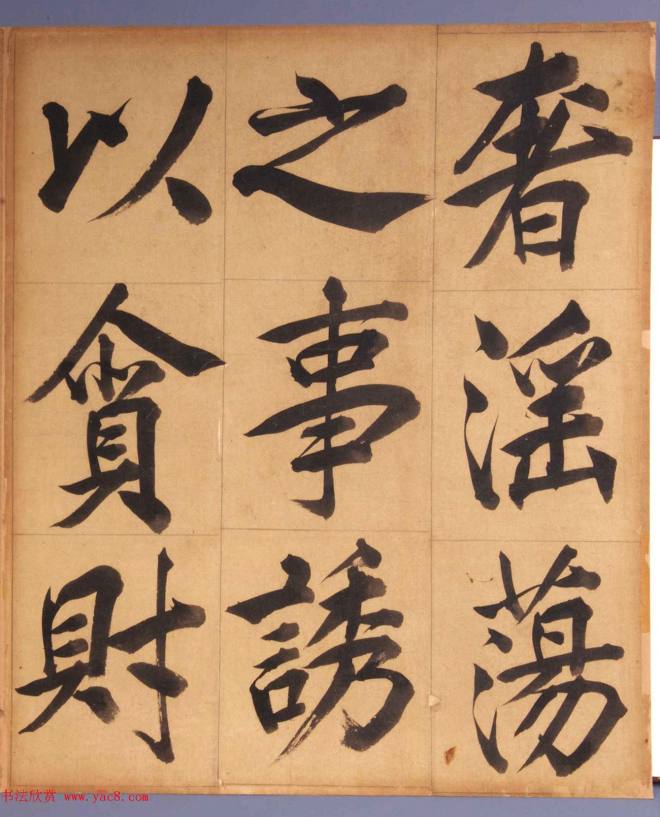 奢滛蕩
之事誘
以貪財
书法欣赏 www.yac8.com